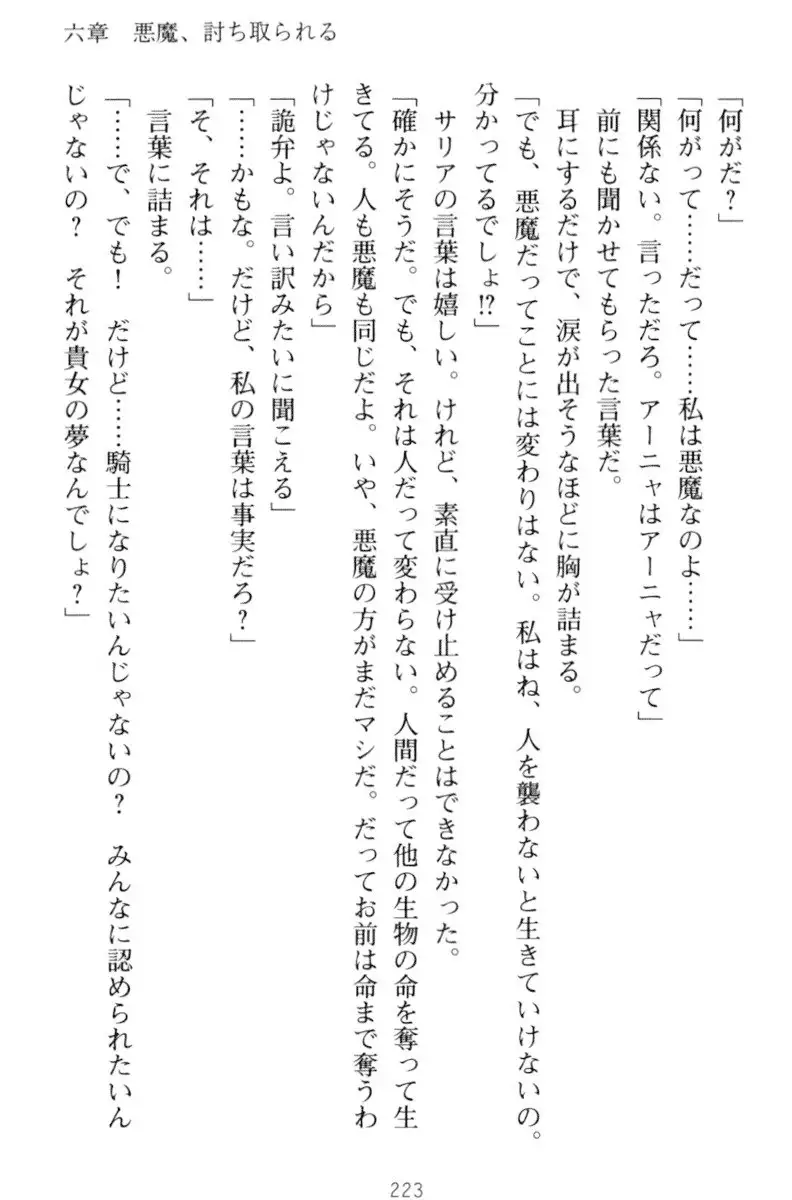 六章　悪魔、討ち取られる
「何がだ？」
「何がって……だって……私は悪魔なのよ……」
「関係ない。言っただろ。アーニャはアーニャだって」
前にも聞かせてもらった言葉だ。
耳にするだけで、涙が出そうなほどに胸が詰まる。
「でも、悪魔だってことには変わりはない。私はね、人を襲わないと生きていけないの。
分かってるでしょ!?」
サリアの言葉は嬉しい。けれど、素直に受け止めることはできなかった。
「確かにそうだ。でも、それは人だって変わらない。人間だって他の生物の命を奪って生
きてる。人も悪魔も同じだよ。いや、悪魔の方がまだマシだ。だってお前は命まで奪うわ
けじゃないんだから」
「詭弁よ。言い訳みたいに聞こえる」
「……かもな。だけど、私の言葉は事実だろ？」
「そ、それは……」
言葉に詰まる。
「……で、でも！　だけど……騎士になりたいんじゃないの？　みんなに認められたいん
じゃないの？　それが貴女の夢なんでしょ？」
223